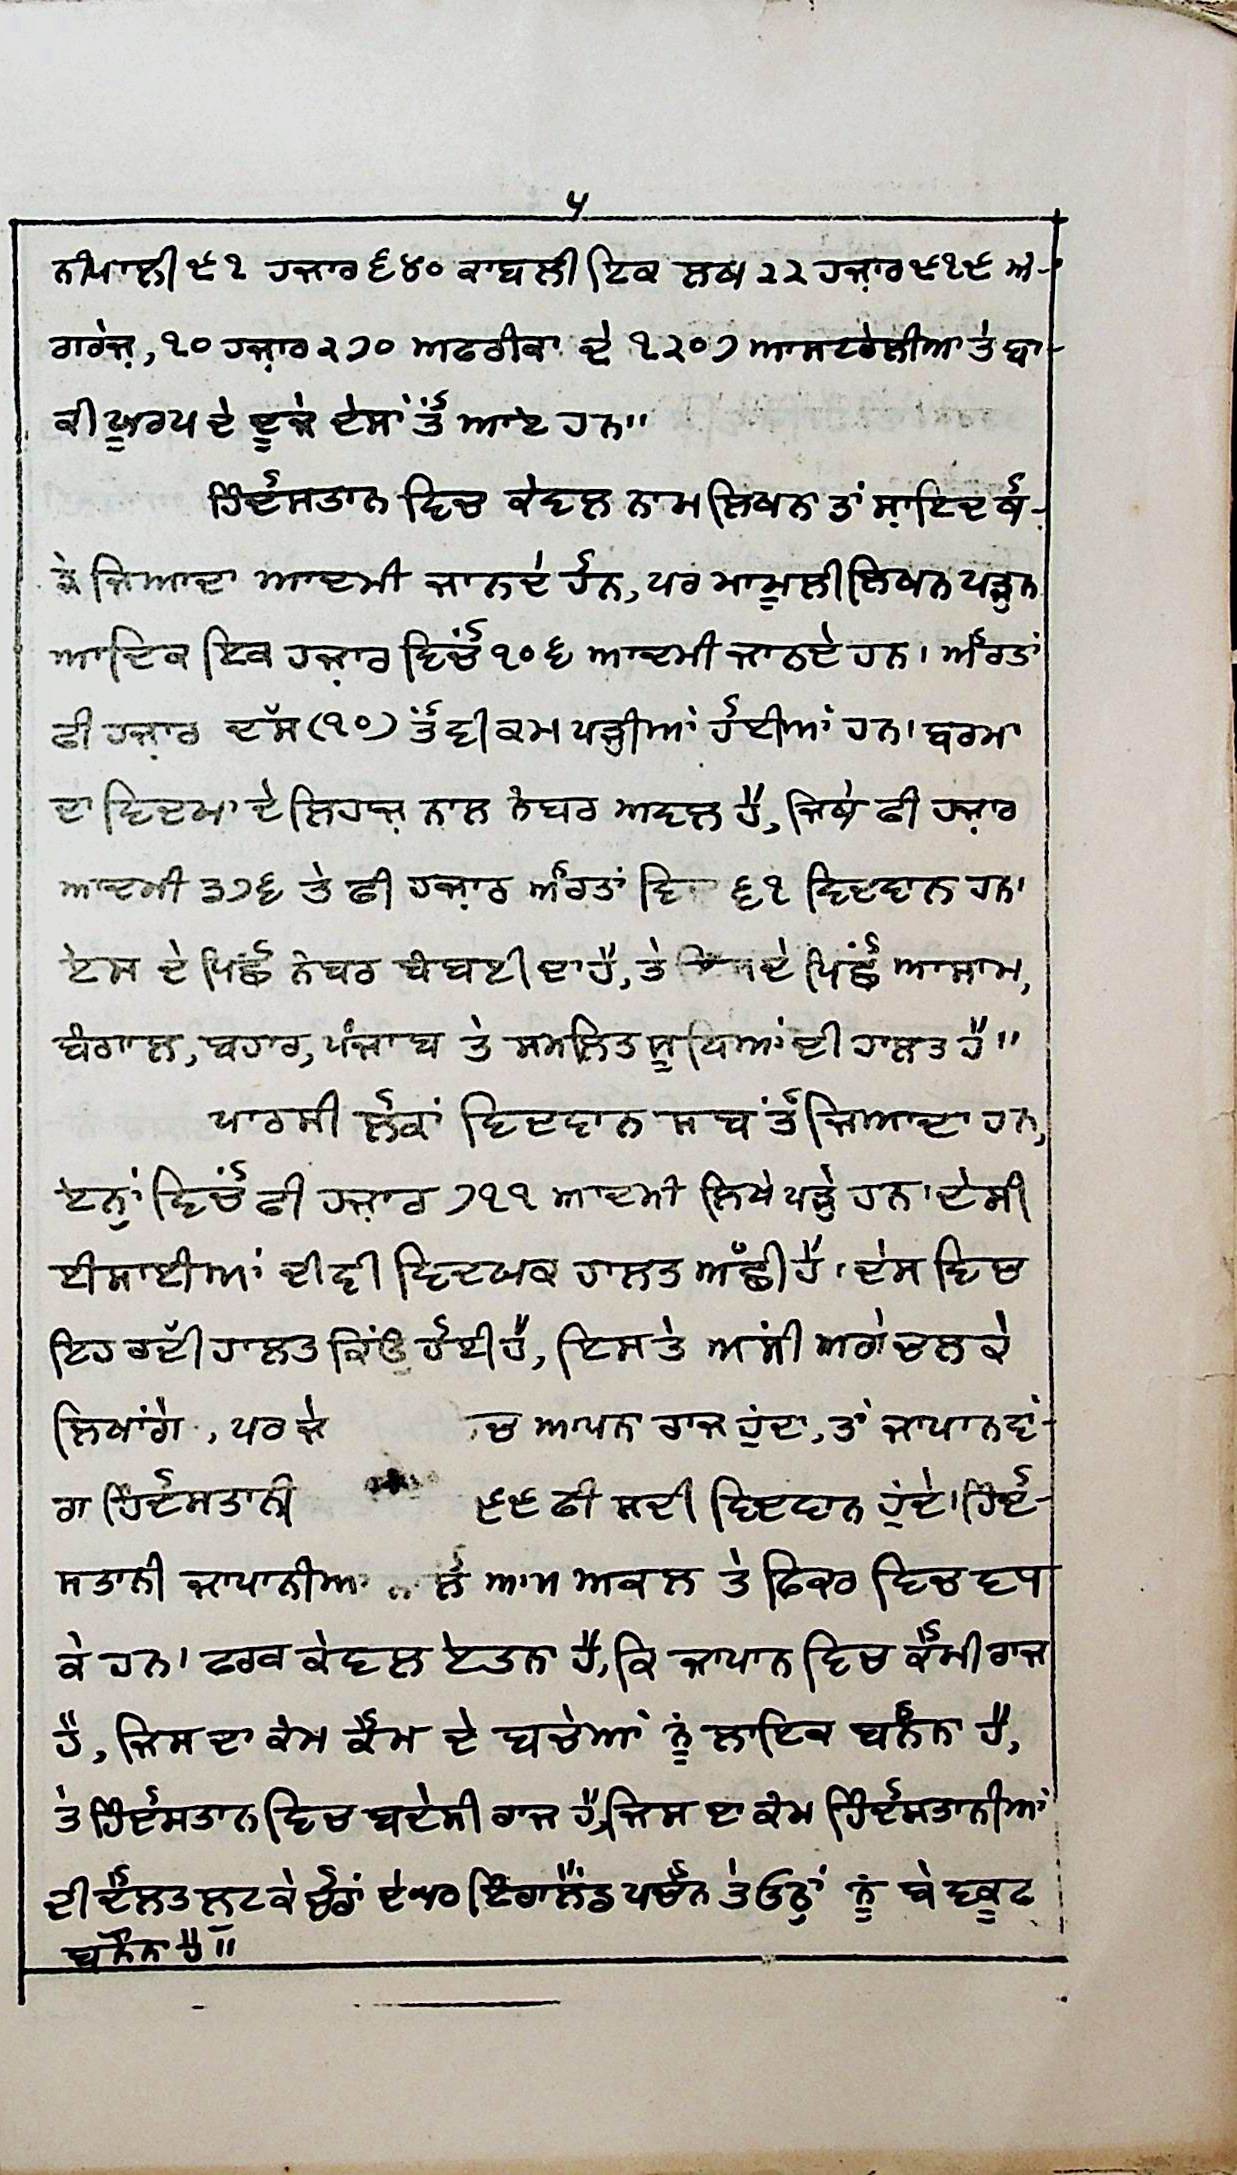 ੫
ਨੀਪਾਲੀ ੯੧ ਹਜਾਰ ੬੪੦ ਕਾਬਲੀ ਇਕ ਲਖ ੨੨ ਹਜ਼ਾਰ ੯੧੯ ਅੰ-
ਗਰੇਜ਼, ੧੦ ਹਜ਼ਾਰ ੨੭੦ ਅਫਰੀਕਾ ਦੇ ੧੨੦੭ ਆਸਟਰੇਲੀਆ ਤੇ ਬਾ-
ਕੀ ਯੂਰਪ ਦੇ ਦੂਜੇ ਦੇਸਾਂ ਤੋਂ ਆਏ ਹਨ॥
ਹਿੰਦੋਸਤਾਨ ਵਿਚ ਕੇਵਲ ਨਾਮ ਲਿਖਨ ਤਾਂ ਸ਼ਾਇਦ ਥੋ-
ੜੇ ਜਿਆਦਾ ਆਦਮੀ ਜਾਨਦੇ ਹੋਨ, ਪਰ ਮਾਮੂਲੀ ਲਿਖਨ ਪੜ੍ਹਨ
ਆਦਿਕ ਇਕ ਹਜ਼ਾਰ ਵਿਚੋਂ ੧੦੬ ਆਦਮੀ ਜਾਨਦੇ ਹਨ। ਔਰਤਾਂ
ਫੀ ਹਜ਼ਾਰ ਦੱਸ (੧੦) ਤੋਂ ਵੀ ਕਮ ਪੜ੍ਹੀਆਂ ਹੋਈਆਂ ਹਨ। ਬਰਮਾ
ਦਾ ਵਿਦਯਾ ਦੇ ਲਿਹਾਜ਼ ਨਾਲ ਨੰਬਰ ਅਵਲ ਹੈ, ਜਿਥੇ ਫੀ ਹਜ਼ਾਰ
ਆਦਮੀ ੩੭੬ ਤੇ ਫੀ ਹਜ਼ਾਰ ਔਰਤਾਂ ੬੧ ਵਿਦਵਾਨ ਹਨ।
ਏਸ ਦੇ ਪਿਛੋਂ ਨੰਬਰ ਬੰਬਈ ਦਾ ਹੈ, ਤੇ ਦੇ ਪਿਛੋਂ ਆਸਾਮ,
ਬੰਗਾਲ, ਬਹਾਰ, ਪੰਜਾਬ ਤੇ ਸਮਲਿਤ ਸੂਬਿਆਂ ਦੀ ਹਾਲਤ ਹੈ॥
ਪਾਰਸੀ ਲੋਕਾਂ ਵਿਦਵਾਨ ਸਬ ਤੋਂ ਜਿਆਦਾ ਹਨ,
ਏਨ੍ਹਾਂ ਵਿਚੋਂ ਫੀ ਹਜ਼ਾਰ ੭੧੧ ਆਦਮੀ ਲਿਖੇ ਪੜ੍ਹੇ ਹਨ। ਦੇਸੀ
ਈਸਾਈਆਂ ਦੀ ਵੀ ਵਿਦਯਕ ਹਾਲਤ ਅੱਛੀ ਹੈ। ਦੇਸ ਵਿਚ
ਇਹ ਰਦੀ ਹਾਲਤ ਕਿਉਂ ਹੋਈ ਹੈ, ਇਸ ਤੇ ਅਸੀਂ ਅਗੇ ਚਲ ਕੇ
ਲਿਖਾਂਗੇ, ਪਰ ਜੇ ਚ ਆਪਨਾ ਰਾਜ ਹੁੰਦਾ, ਤਾਂ ਜਾਪਾਨ ਵਾਂ-
ਗ ਹਿੰਦੋਸਤਾਨੀ ੯੯ ਫੀ ਸਦੀ ਵਿਦਵਾਨ ਹੁੰਦੇ। ਹਿੰਦੋ-
ਸਤਾਨੀ ਜਾਪਾਨੀਆਂ ਆਮ ਅਕਲ ਤੇ ਫਿਕਰ ਵਿਚ ਵਧ
ਕੇ ਹਨ। ਫਰਕ ਕੇਵਲ ਏਤਨਾ ਹੈ, ਕਿ ਜਾਪਾਨ ਵਿਚ ਕੌਮੀ ਰਾਜ
ਹੈ, ਜਿਸ ਦਾ ਕੰਮ ਕੌਮ ਦੇ ਬਚੇਆਂ ਨੂੰ ਲਾਇਕ ਬਨੌਨਾ ਹੈ,
ਤੇ ਹਿੰਦੋਸਤਾਨ ਵਿਚ ਬਦੇਸੀ ਰਾਜ ਹੈ, ਜਿਸ ਦਾ ਕੰਮ ਹਿੰਦੋਸਤਾਨੀਆਂ
ਦੀ ਦੌਲਤ ਲੁਟ ਕੇ ਚੋਰਾਂ ਦੇ ਘਰ ਇੰਗਲੈਂਡ ਪਚੌਨ ਤੇ ਓਨ੍ਹਾਂ ਨੂੰ ਬੇਵਕੂਫ
ਬਨੌਨਾ ਹੈ॥